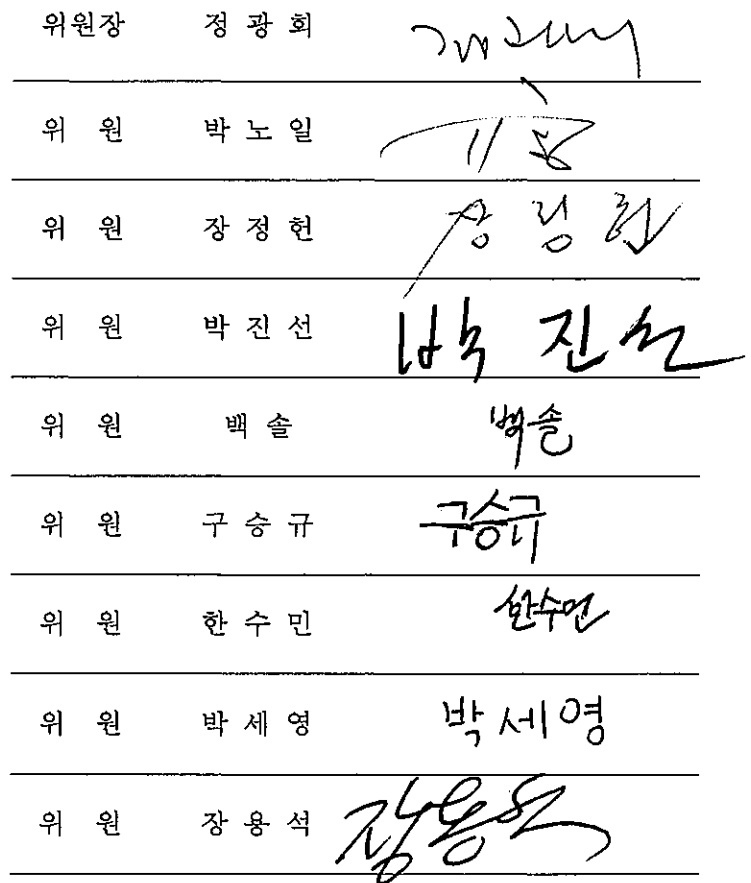 위원장 정 광 회
위 원 박 노 일
위 원 장 정 헌 장 정 헌
위 원 박 진 선 박 진 선
위 원 백 솔 백솔
위 원 구 승 규 구승규
위 원 한 수 민 한수민
위 원 박 세 영 박세영
위 원 장 용 석 장용석